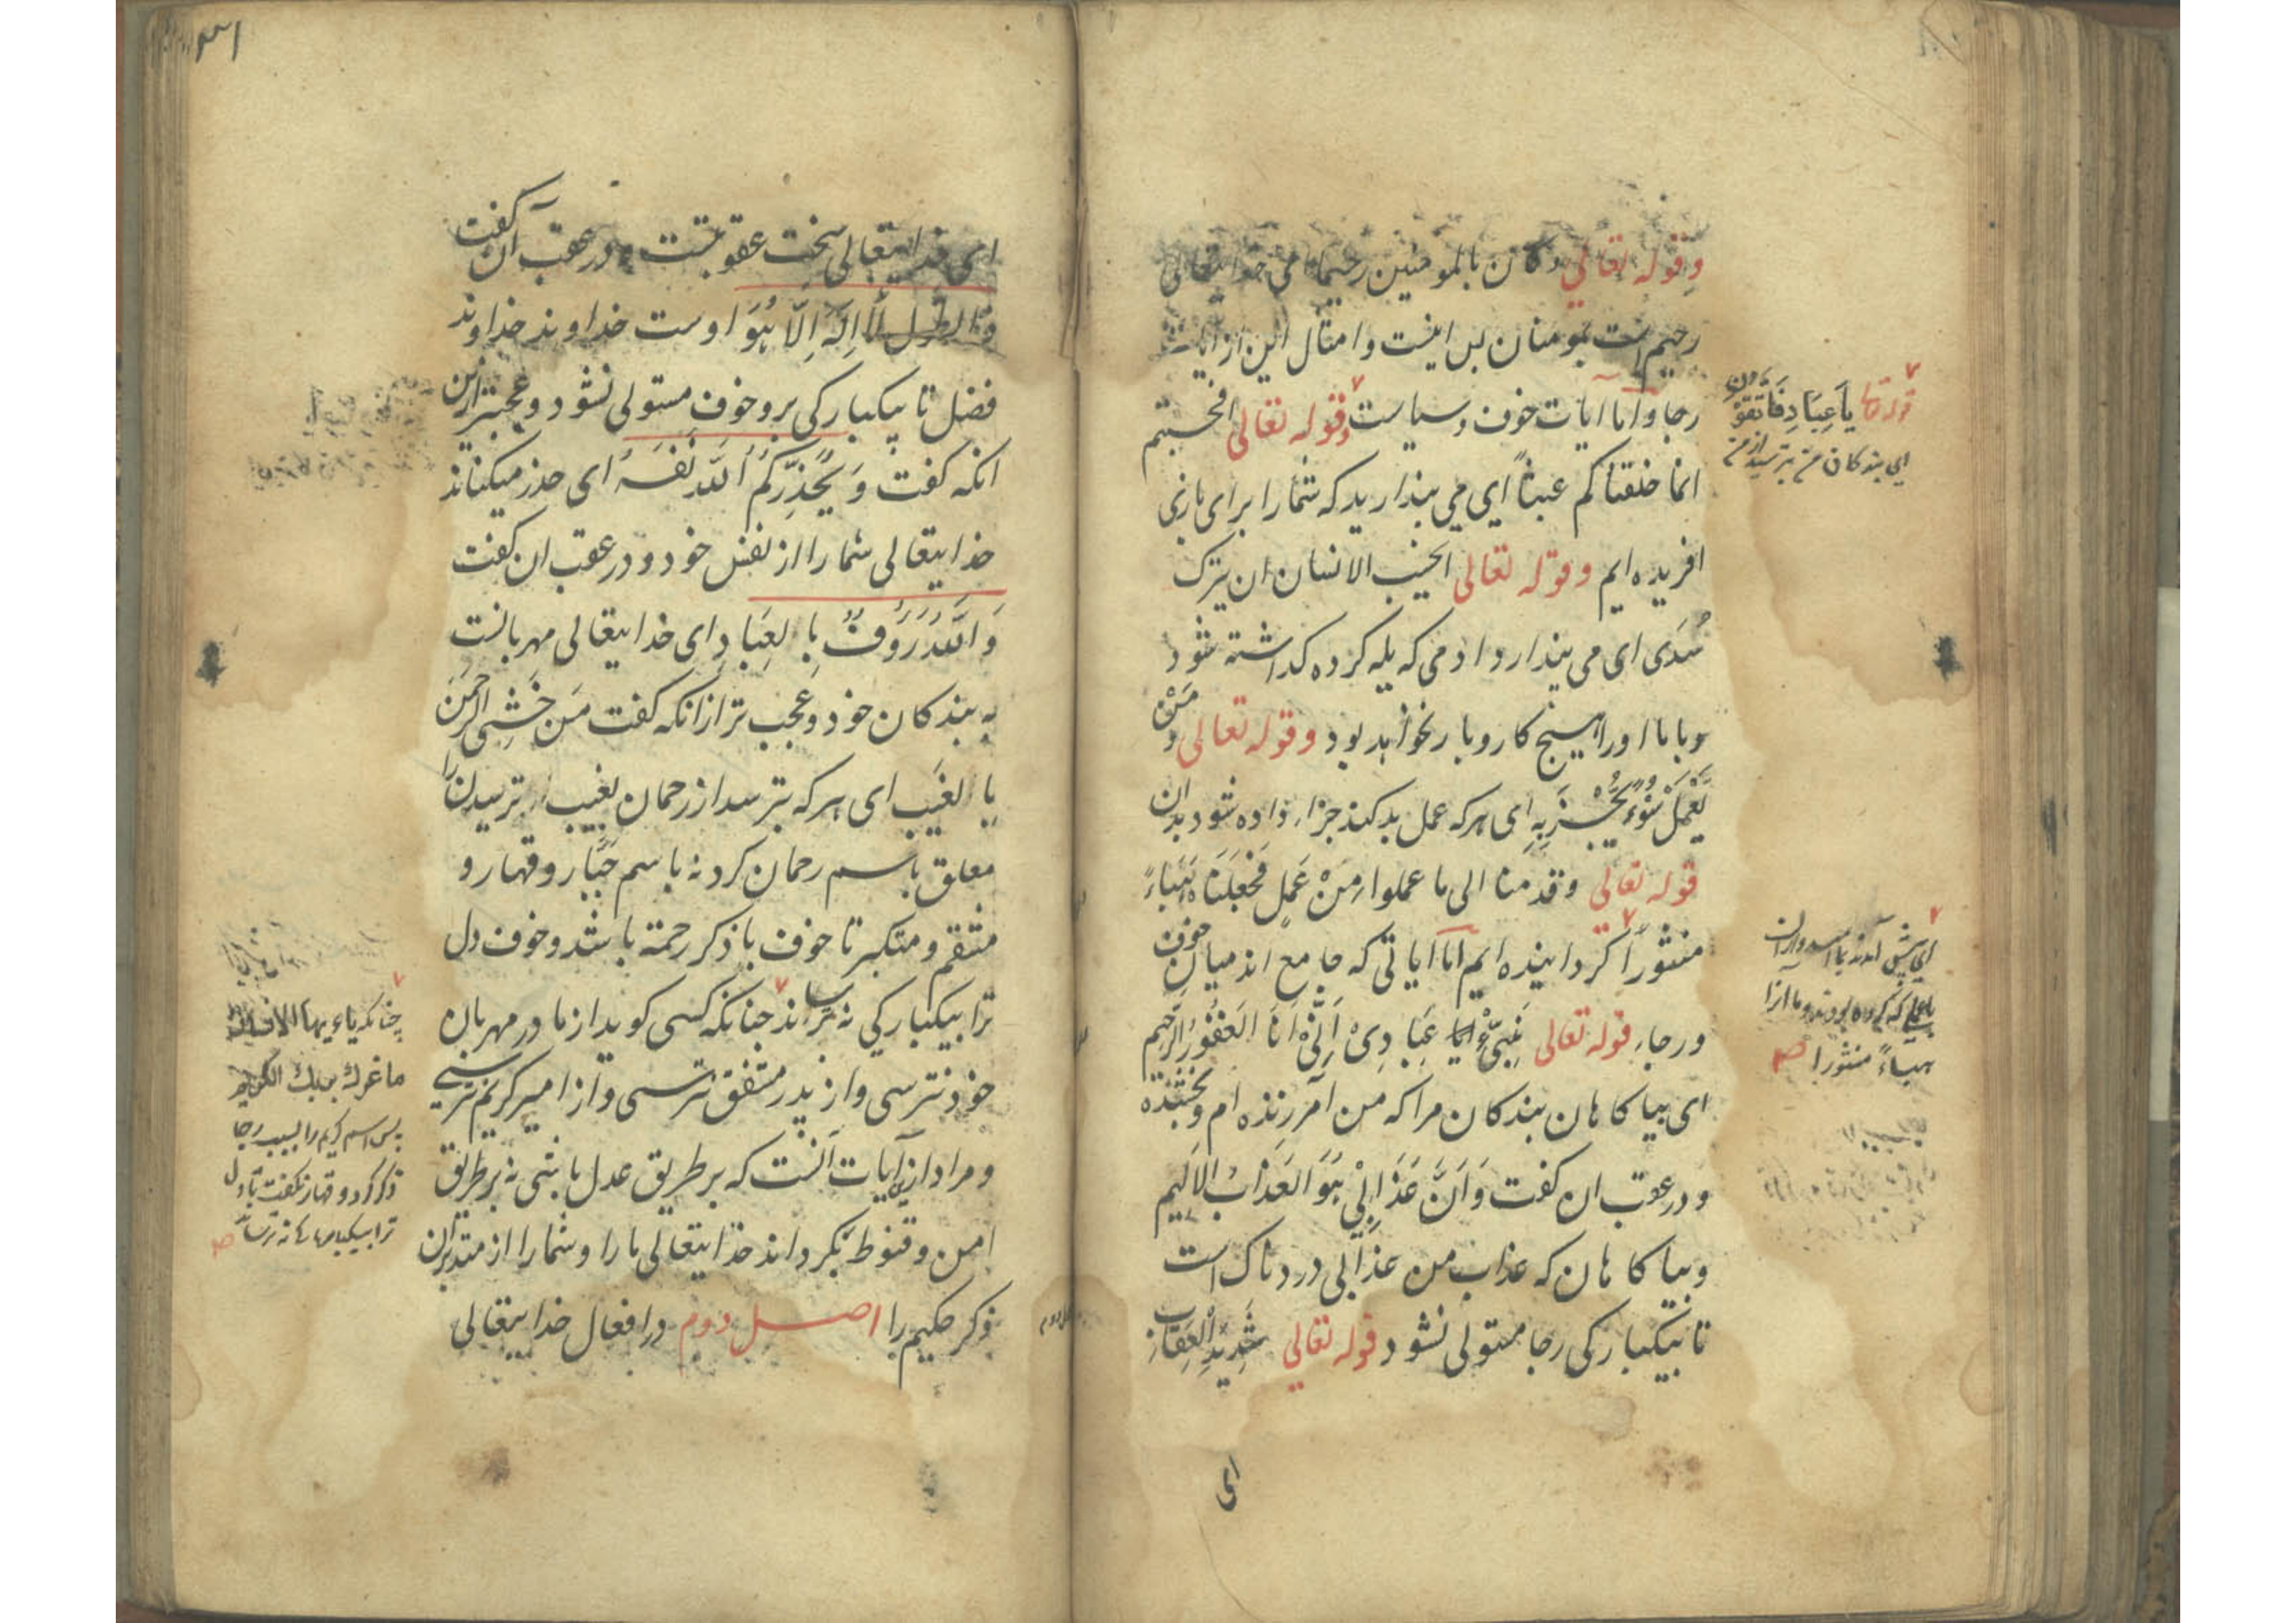 وقوله تعالی و کان بالمومنین رحیما ای خدایتعالی
رحیم است بمومنان پس اینست و امثال این از آیات
رجا و اما آیات خوف و سیاست وقوله تعالی افحسبتم
انما خلقناکم عبثاً ای می پندارید که شما را برای بازی
افریده ایم وقوله تعالی ایحسب الانسان ان یترک
سُدًی ای می پندارد ادمی که یله کرده گذاشته شود
وبا با اورا هیچ کاروبار نخواهد بود وقوله تعالی و مَنْ
یَّعْمَلْ سُوْءً یُّجْزَ بِهِ ای هرکه عمل بد کند جزاء داده شود بدان
قوله تعالی وقدمنا الی ما عملوا مِنْ عَمَلٍ فَجَعَلْنَاهُ هَبَاءً
منثوراً گردانیده ایم اما آیاتی که جامع اند میان خوف
ورجاء قوله تعالی نَبِّیْٔ عِبَادِیْ اَنِّیْ اَنَا الغَفُوْرُ الرَّحِیْم
ای بیاگاهان بندگان مرا که من آمرزنده ام و بخشنده
و درعقب ان گفت وَاَنَّ عَذَابِیْ هُوَ العَذَابُ الاَلِیْم
وبیاگاهان که عذاب من عذابی دردناک است
تا بیکبارگی رجا مستولی نشود قوله تعالی شَدِیْدِ الْعِقَابِ
ای
قوله تعا یَا عِبَادِ فَاتَّقُوْنِ
ای بندگان من بترسید از من
ای پیش آمدند با امیدواران
با عملی که کرده بودند وما آنرا
هباءً منثورا صح
ای خدایتعالی سخت عقوبتست و درعقب ان گفت
ذی الطول لَا اِلٰهَ اِلَّا هُوَ اوست خداوند خداوند
فضل تا بیکبارگی برو خوف مستولی نشود و عجبتر ازین
انکه گفت وَ یُحَذِّرُکُمُ اللّٰهُ نَفْسَهُ ای حذر میکناند
خدایتعالی شما را از نفس خود و درعقب ان گفت
وَ اللّٰهُ رَؤُفٌ بِالعِبَادِ ای خدایتعالی مهربانست
به بندگان خود و عجب تر ازانکه گفت مَن خَشِیَ الرَّحمٰنَ
بِالغَیب ای هرکه بترسد از رحمان بغیب ترسیدن را
معلق باسم رحمان کرد نه باسم جَبّار و قهار و
منتقم و متکبر تا خوف با ذکر رحمة باشد و خوف دل
ترا بیکبارگی نه ترساند چنانکه کسی گوید از مادر مهربان
خود نترسی و از پدر مشفق نترسی و از امیر کریم نترسی
و مراد ازین آیات آنست که بر طریق عدل باشی نه برطریق
امن و قنوط بگرداند خدایتعالی ما را و شما را از متدبران
ذکر حکیم را اصل دوم در افعال خدایتعالی
چنانکه یاءیها الانسان
ما غرك بربك الکریم
پس اسم کریم را بسبب رجا
ذکر کرد و قهار نگفت تا دل
ترا بیکبارگی نه ترساند صح